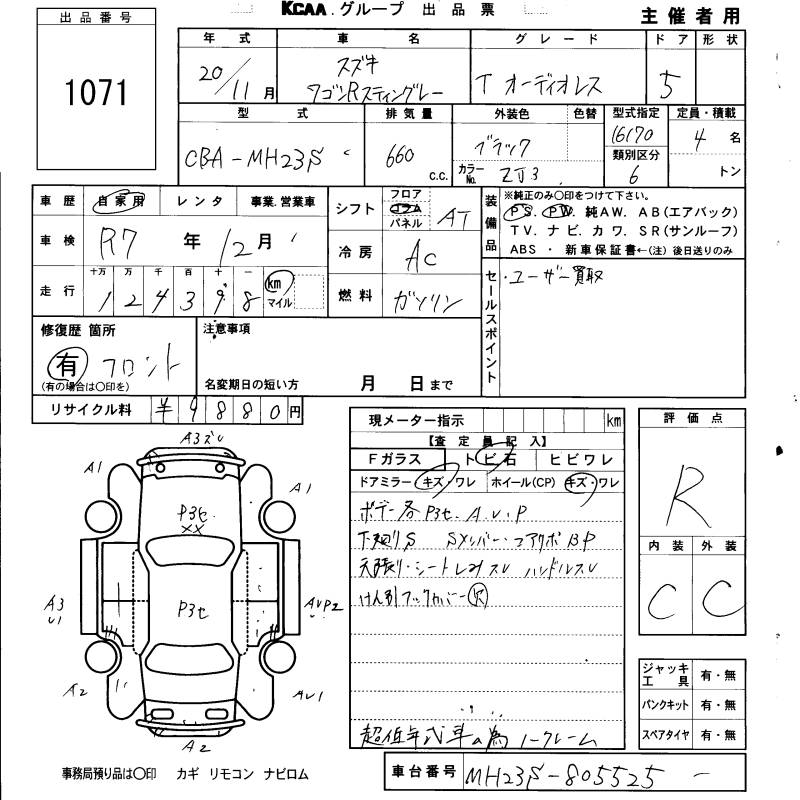 KCAA.グループ 出品票
主催者用
出品番号
1071
年式 車名 グレード ドア 形状
20/11月 スズキ ワゴンRスティングレー T オーディオレス 5
型式 排気量 外装色 色替 型式指定 定員・積載
CBA-MH23S 660 c.c. ブラック カラーNo. ZJ3 16170 類別区分 6 4名 トン
車歴 自家用 レンタ 事業.営業車
車検 R7年12月
走行 十万 万 千 百 十 一 km マイル
124398
シフト フロア コラム パネル AT
冷房 AC
燃料 ガソリン
装備品 ※純正のみ○印をつけて下さい。
PS. PW. 純AW. AB(エアバック)
TV. ナビ. カワ. SR(サンルーフ)
ABS ・ 新車保証書←(注)後日送りのみ
セールスポイント ・ユーザー買取
修復歴 箇所 注意事項
有 フロント
(有の場合は○印を) 名変期日の短い方 月 日まで
リサイクル料 ¥9880円
現メーター指示 km
【査定員記入】
Fガラス トビ石 ヒビワレ
ドアミラー キズ・ワレ ホイール(CP) キズ・ワレ
ボデー各P3セ.A.U.P
下廻りS SメンバーコアサポBP
天張り・シートしみスレ ハンドルスレ
けん引フックカバー欠
超低年式車の為ノークレーム
評価点
R
内装 外装
C C
ジャッキ工具 有・無
パンクキット 有・無
スペアタイヤ 有・無
A3ズレ
A1
A1
P3セ
XX
A3
U1
P3セ
AUP2
A2
AU1
A2
事務局預り品は○印 カギ リモコン ナビロム
車台番号 MH23S-805525